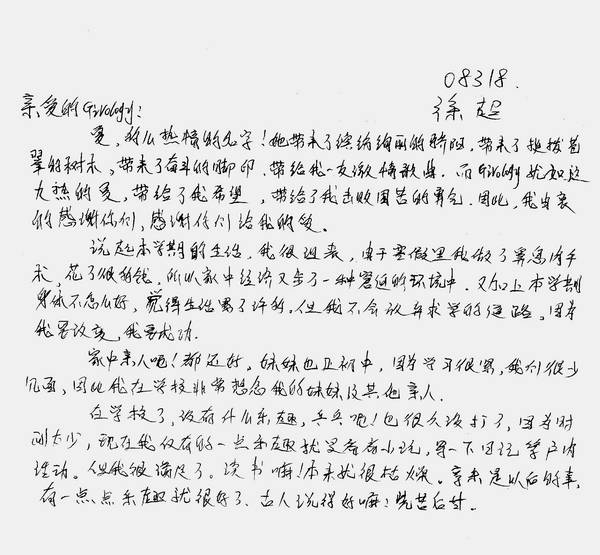 08318.
徐超
亲爱的Givology:
夏,多么热情的名字!她带来了绚丽的骄阳,带来了挺拔苍
翠的树木,带来了奋斗的脚印,带给我一友激情歌曲.而Givology犹如这
九热的夏,带给了我希望,带给了我击败困苦的勇气.因此,我由衷
的感谢你们,感谢你们给我的爱。
说起本学期的生活,我很迥衷,由于寒假里我做了鼻息肉手
术,花了很多钱,所以家中经济又步了一种窘迫的环境中.又加上本学期
身体不怎么好,觉得生活累了许多.但我不会放弃求学的道路,因为
我要改变,我要成功.
家中亲人吧!都还好,妹妹也正初中,因为学习很累,我们很少
见面,因此我在学校非常想念我的妹妹及其他亲人.
在学校了,没有什么乐趣,乒乓吧!也很久没打了,因为时
间太少,现在我仅有的一点乐趣就是看看小说,写一下日记等户内
活动。但我很满足了。读书嘛!本来就很枯燥。享乐是以后的事,
有一点点乐趣就很好了、古人说得好嘛!先苦后甘.